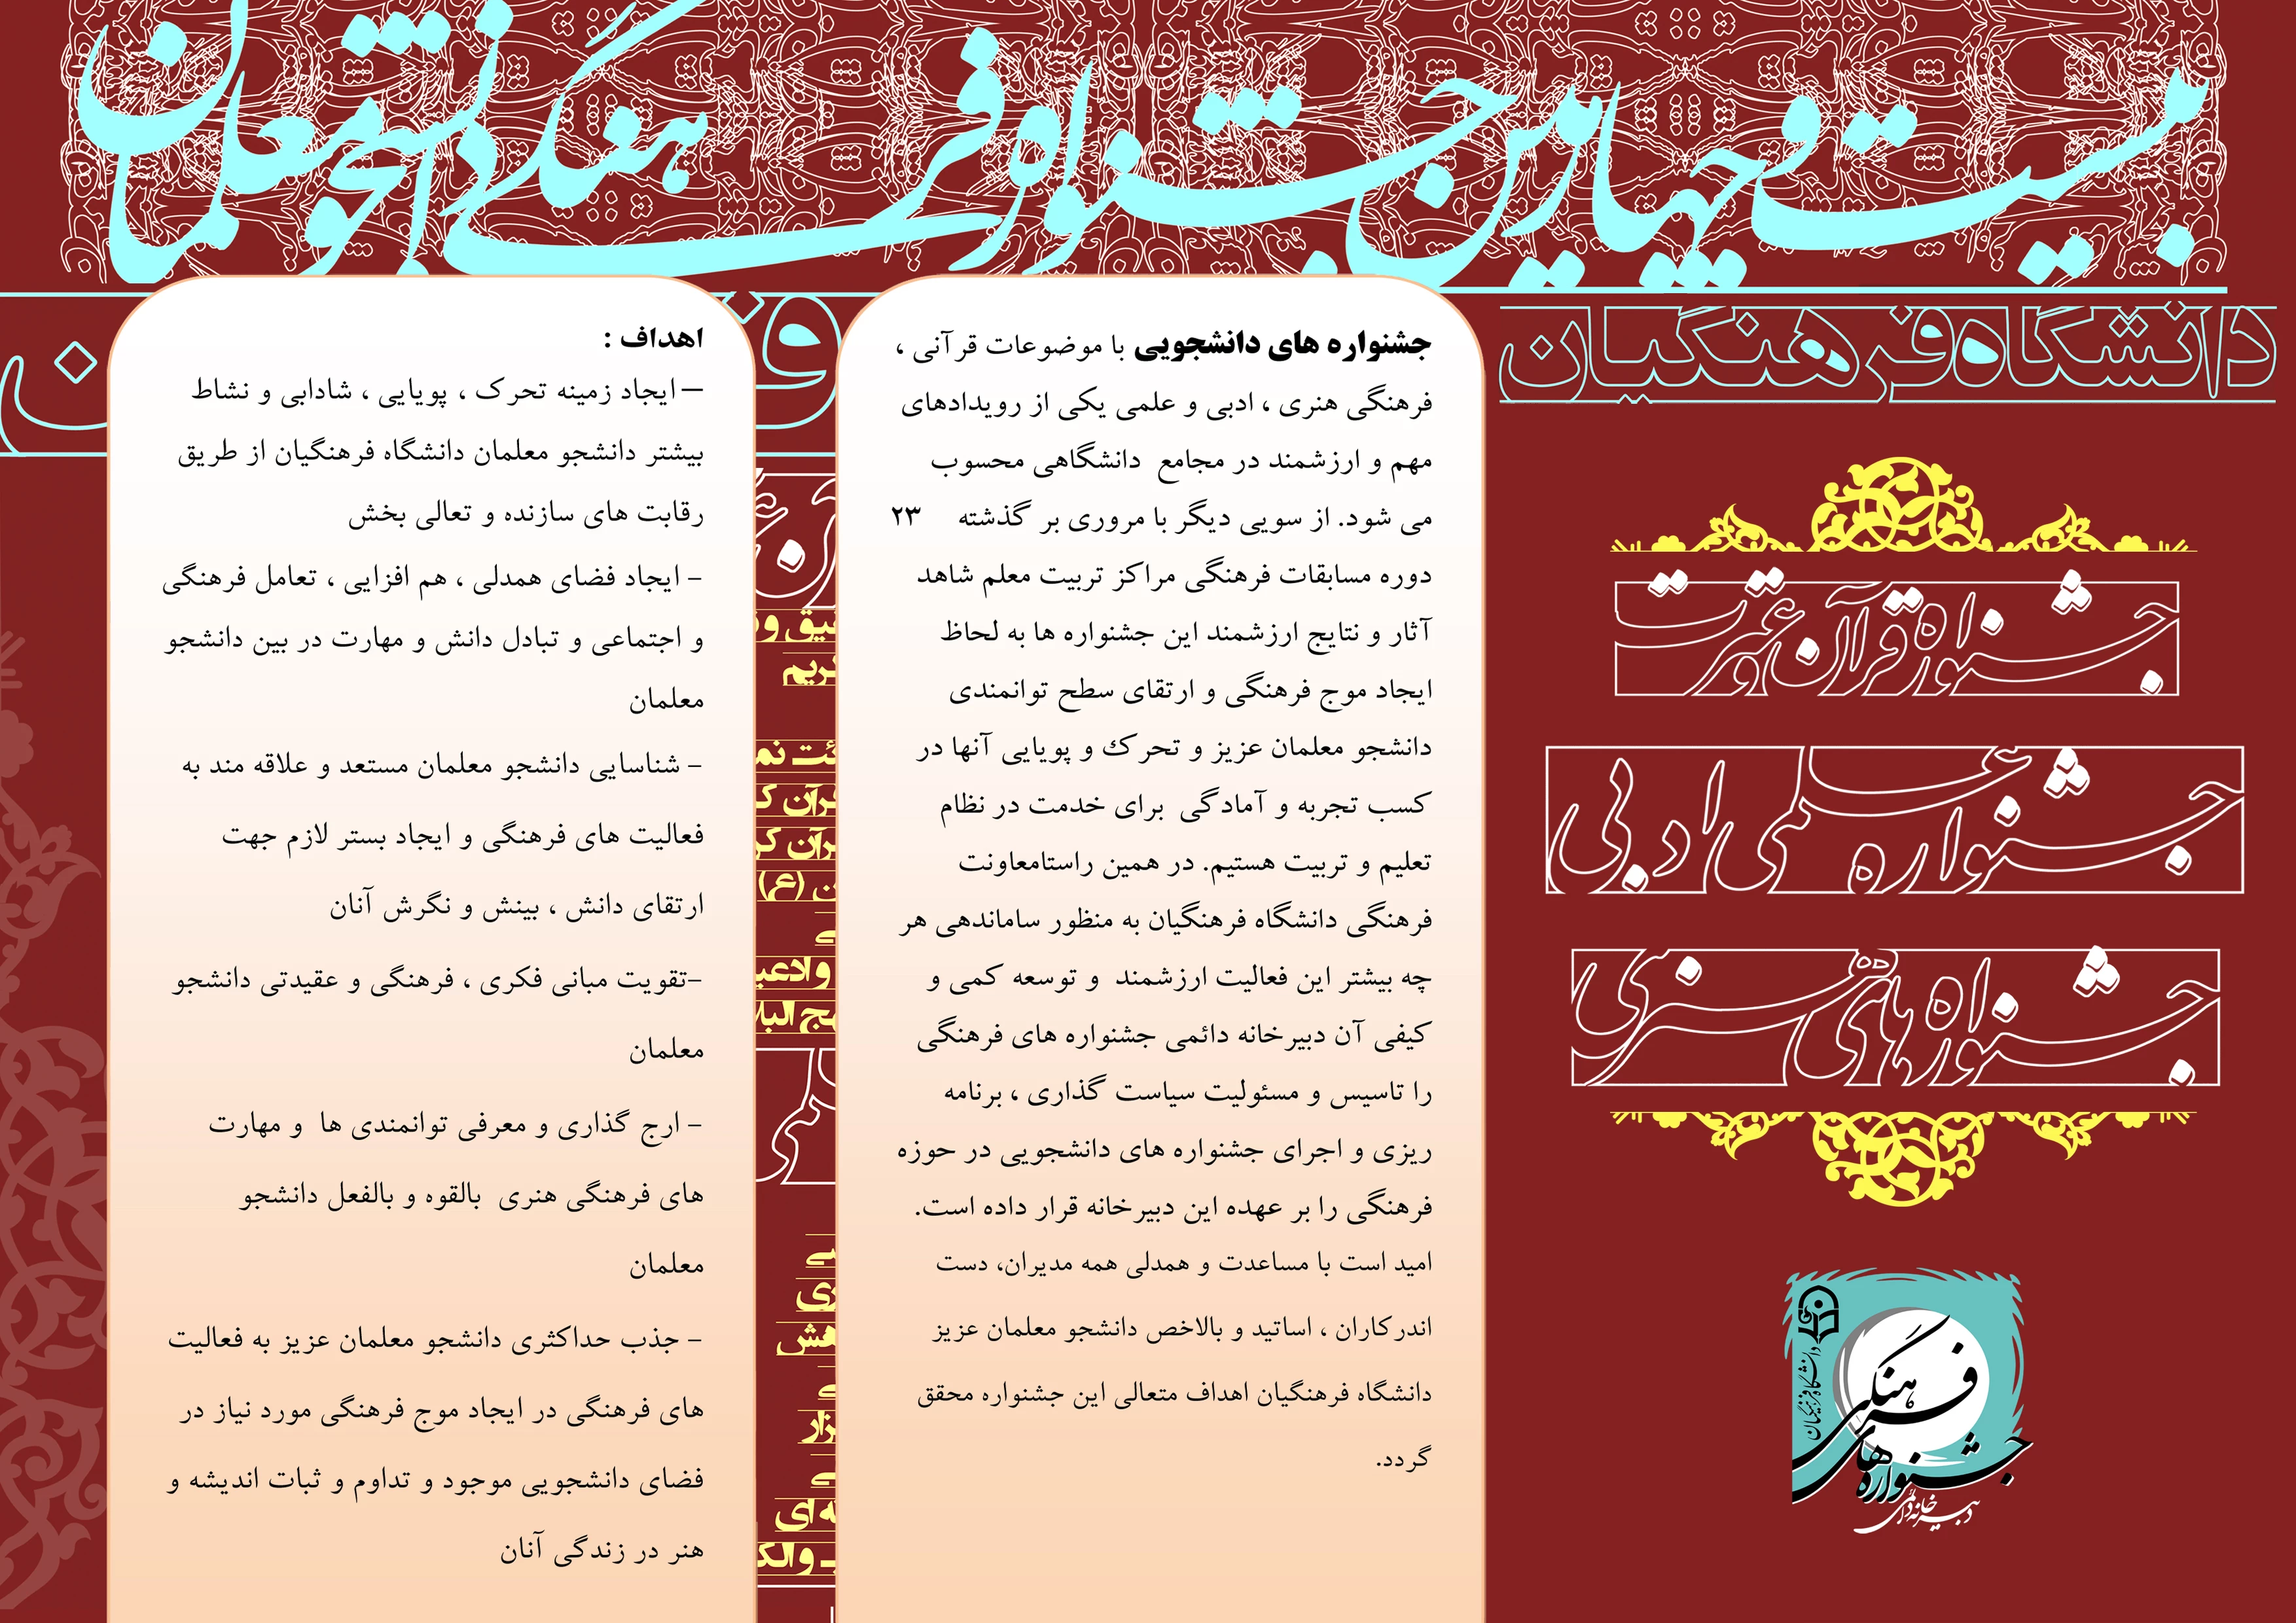 بیست و چهارمین جشنواره فرهنگی دانشجو معلمان
دانشگاه فرهنگیان
جشنواره قرآن و عترت
جشنواره علمی ادبی
جشنواره های هنری
دانشگاه فرهنگیان
جشنواره های فرهنگی
دبیرخانه دائمی
جشنواره های دانشجویی با موضوعات قرآنی ،
فرهنگی هنری ، ادبی و علمی یکی از رویدادهای
مهم و ارزشمند در مجامع دانشگاهی محسوب
می شود. از سویی دیگر با مروری بر گذشته ۲۳
دوره مسابقات فرهنگی مراکز تربیت معلم شاهد
آثار و نتایج ارزشمند این جشنواره ها به لحاظ
ایجاد موج فرهنگی و ارتقای سطح توانمندی
دانشجو معلمان عزیز و تحرک و پویایی آنها در
کسب تجربه و آمادگی برای خدمت در نظام
تعلیم و تربیت هستیم. در همین راستامعاونت
فرهنگی دانشگاه فرهنگیان به منظور ساماندهی هر
چه بیشتر این فعالیت ارزشمند و توسعه کمی و
کیفی آن دبیرخانه دائمی جشنواره های فرهنگی
را تاسیس و مسئولیت سیاست گذاری ، برنامه
ریزی و اجرای جشنواره های دانشجویی در حوزه
فرهنگی را بر عهده این دبیرخانه قرار داده است.
امید است با مساعدت و همدلی همه مدیران، دست
اندرکاران ، اساتید و بالاخص دانشجو معلمان عزیز
دانشگاه فرهنگیان اهداف متعالی این جشنواره محقق
گردد.
اهداف :
– ایجاد زمینه تحرک ، پویایی ، شادابی و نشاط
بیشتر دانشجو معلمان دانشگاه فرهنگیان از طریق
رقابت های سازنده و تعالی بخش
- ایجاد فضای همدلی ، هم افزایی ، تعامل فرهنگی
و اجتماعی و تبادل دانش و مهارت در بین دانشجو
معلمان
- شناسایی دانشجو معلمان مستعد و علاقه مند به
فعالیت های فرهنگی و ایجاد بستر لازم جهت
ارتقای دانش ، بینش و نگرش آنان
-تقویت مبانی فکری ، فرهنگی و عقیدتی دانشجو
معلمان
- ارج گذاری و معرفی توانمندی ها و مهارت
های فرهنگی هنری بالقوه و بالفعل دانشجو
معلمان
- جذب حداکثری دانشجو معلمان عزیز به فعالیت
های فرهنگی در ایجاد موج فرهنگی مورد نیاز در
فضای دانشجویی موجود و تداوم و ثبات اندیشه و
هنر در زندگی آنان